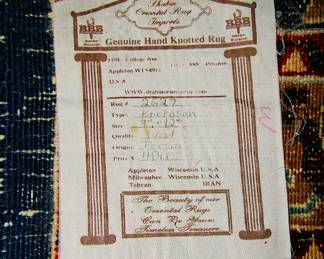 Shabin
Oriental Rug
Imports
BBB
BBB
Genuine Hand Knotted Rug
College Ave
Appleton WI 54911
U.S.A
Rug # 2627
Type: Khorasan
Size: 9' - 12'
Quality: Wool
Origin: Persia
Price $
Appleton Wisconsin U.S.A
Milwaukee Wisconsin U.S.A
Tehran IRAN
The Beauty of our
Oriental Rugs
Can Be Yours
Timeless Treasure